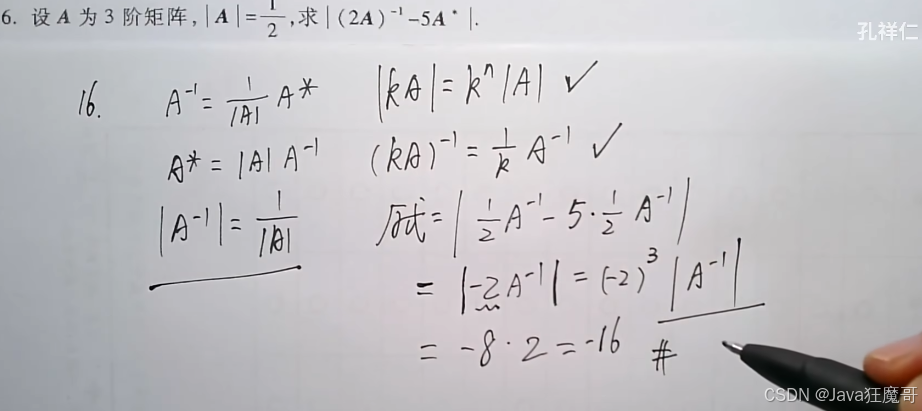 6. 设 A 为 3 阶矩阵, |A|=1/2, 求|(2A)⁻¹-5A*|.
孔祥仁
16.
A⁻¹ = 1/|A| A*
|kA| = kⁿ|A| ✓
A* = |A| A⁻¹
(kA)⁻¹ = 1/k A⁻¹ ✓
|A⁻¹| = 1/|A|
原式 = |1/2 A⁻¹ - 5·1/2 A⁻¹|
= |-2A⁻¹| = (-2)³ |A⁻¹|
= -8·2 = -16 #
CSDN @Java狂魔哥